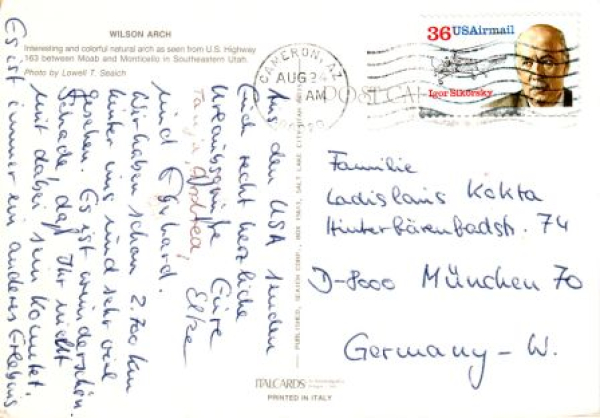 WILSON ARCH
Interesting and colorful natural arch as seen from U.S. Highway
163 between Moab and Monticello in Southeastern Utah.
Photo by Lowell T. Seaich
Aus den USA senden
Euch recht herzliche
Urlaubsgrüße Eure
Tanja, Andrea, Elke
und Eberhard.
Wir haben schon 2.700 km
hinter uns und sehr viel
gesehen. Es ist wunderschön.
Schade, daß Ihr nicht
mit dabei sein konntet.
Es ist immer ein anderes Erlebnis
CAMERON, AZ
AUG 24
AM
36 USAirmail
Igor Sikorsky
POST CARD
Familie
Ladislaus Kokta
Hinterbärenbadstr. 74
D-8000 München 70
Germany - W.
ITALCARDS
PRINTED IN ITALY